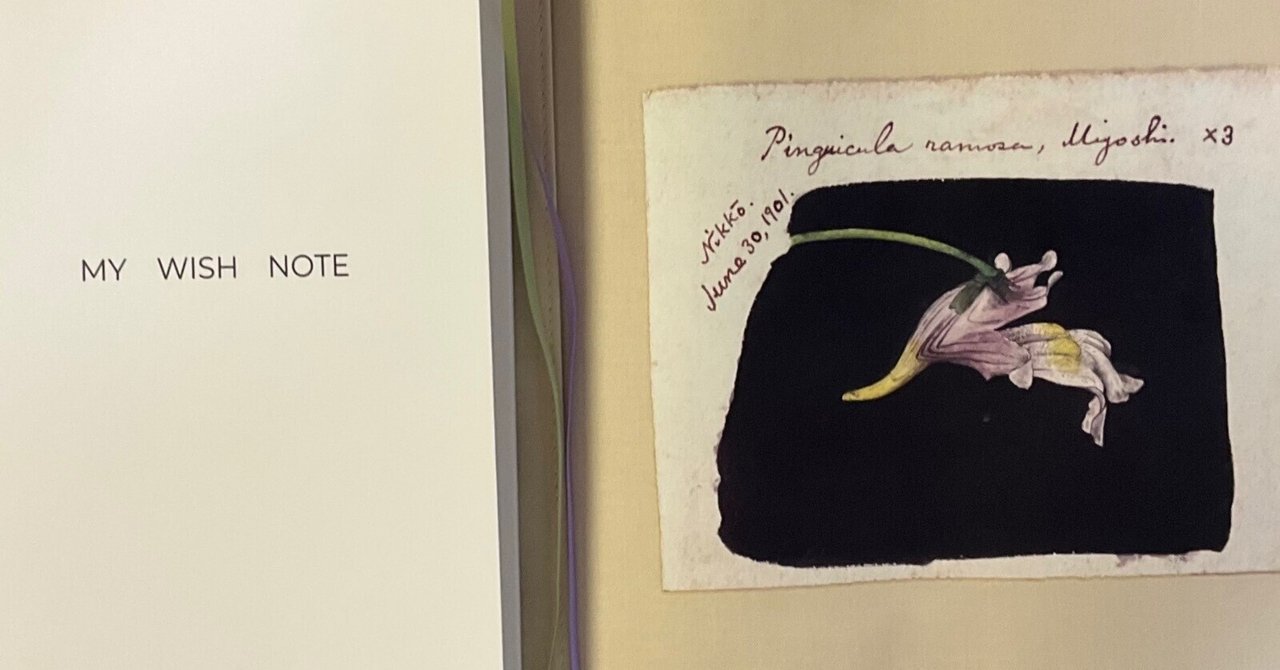 MY WISH NOTE
Pinguicula ramosa, Miyoshi. ×3
Nikkō.
June 30, 1901.